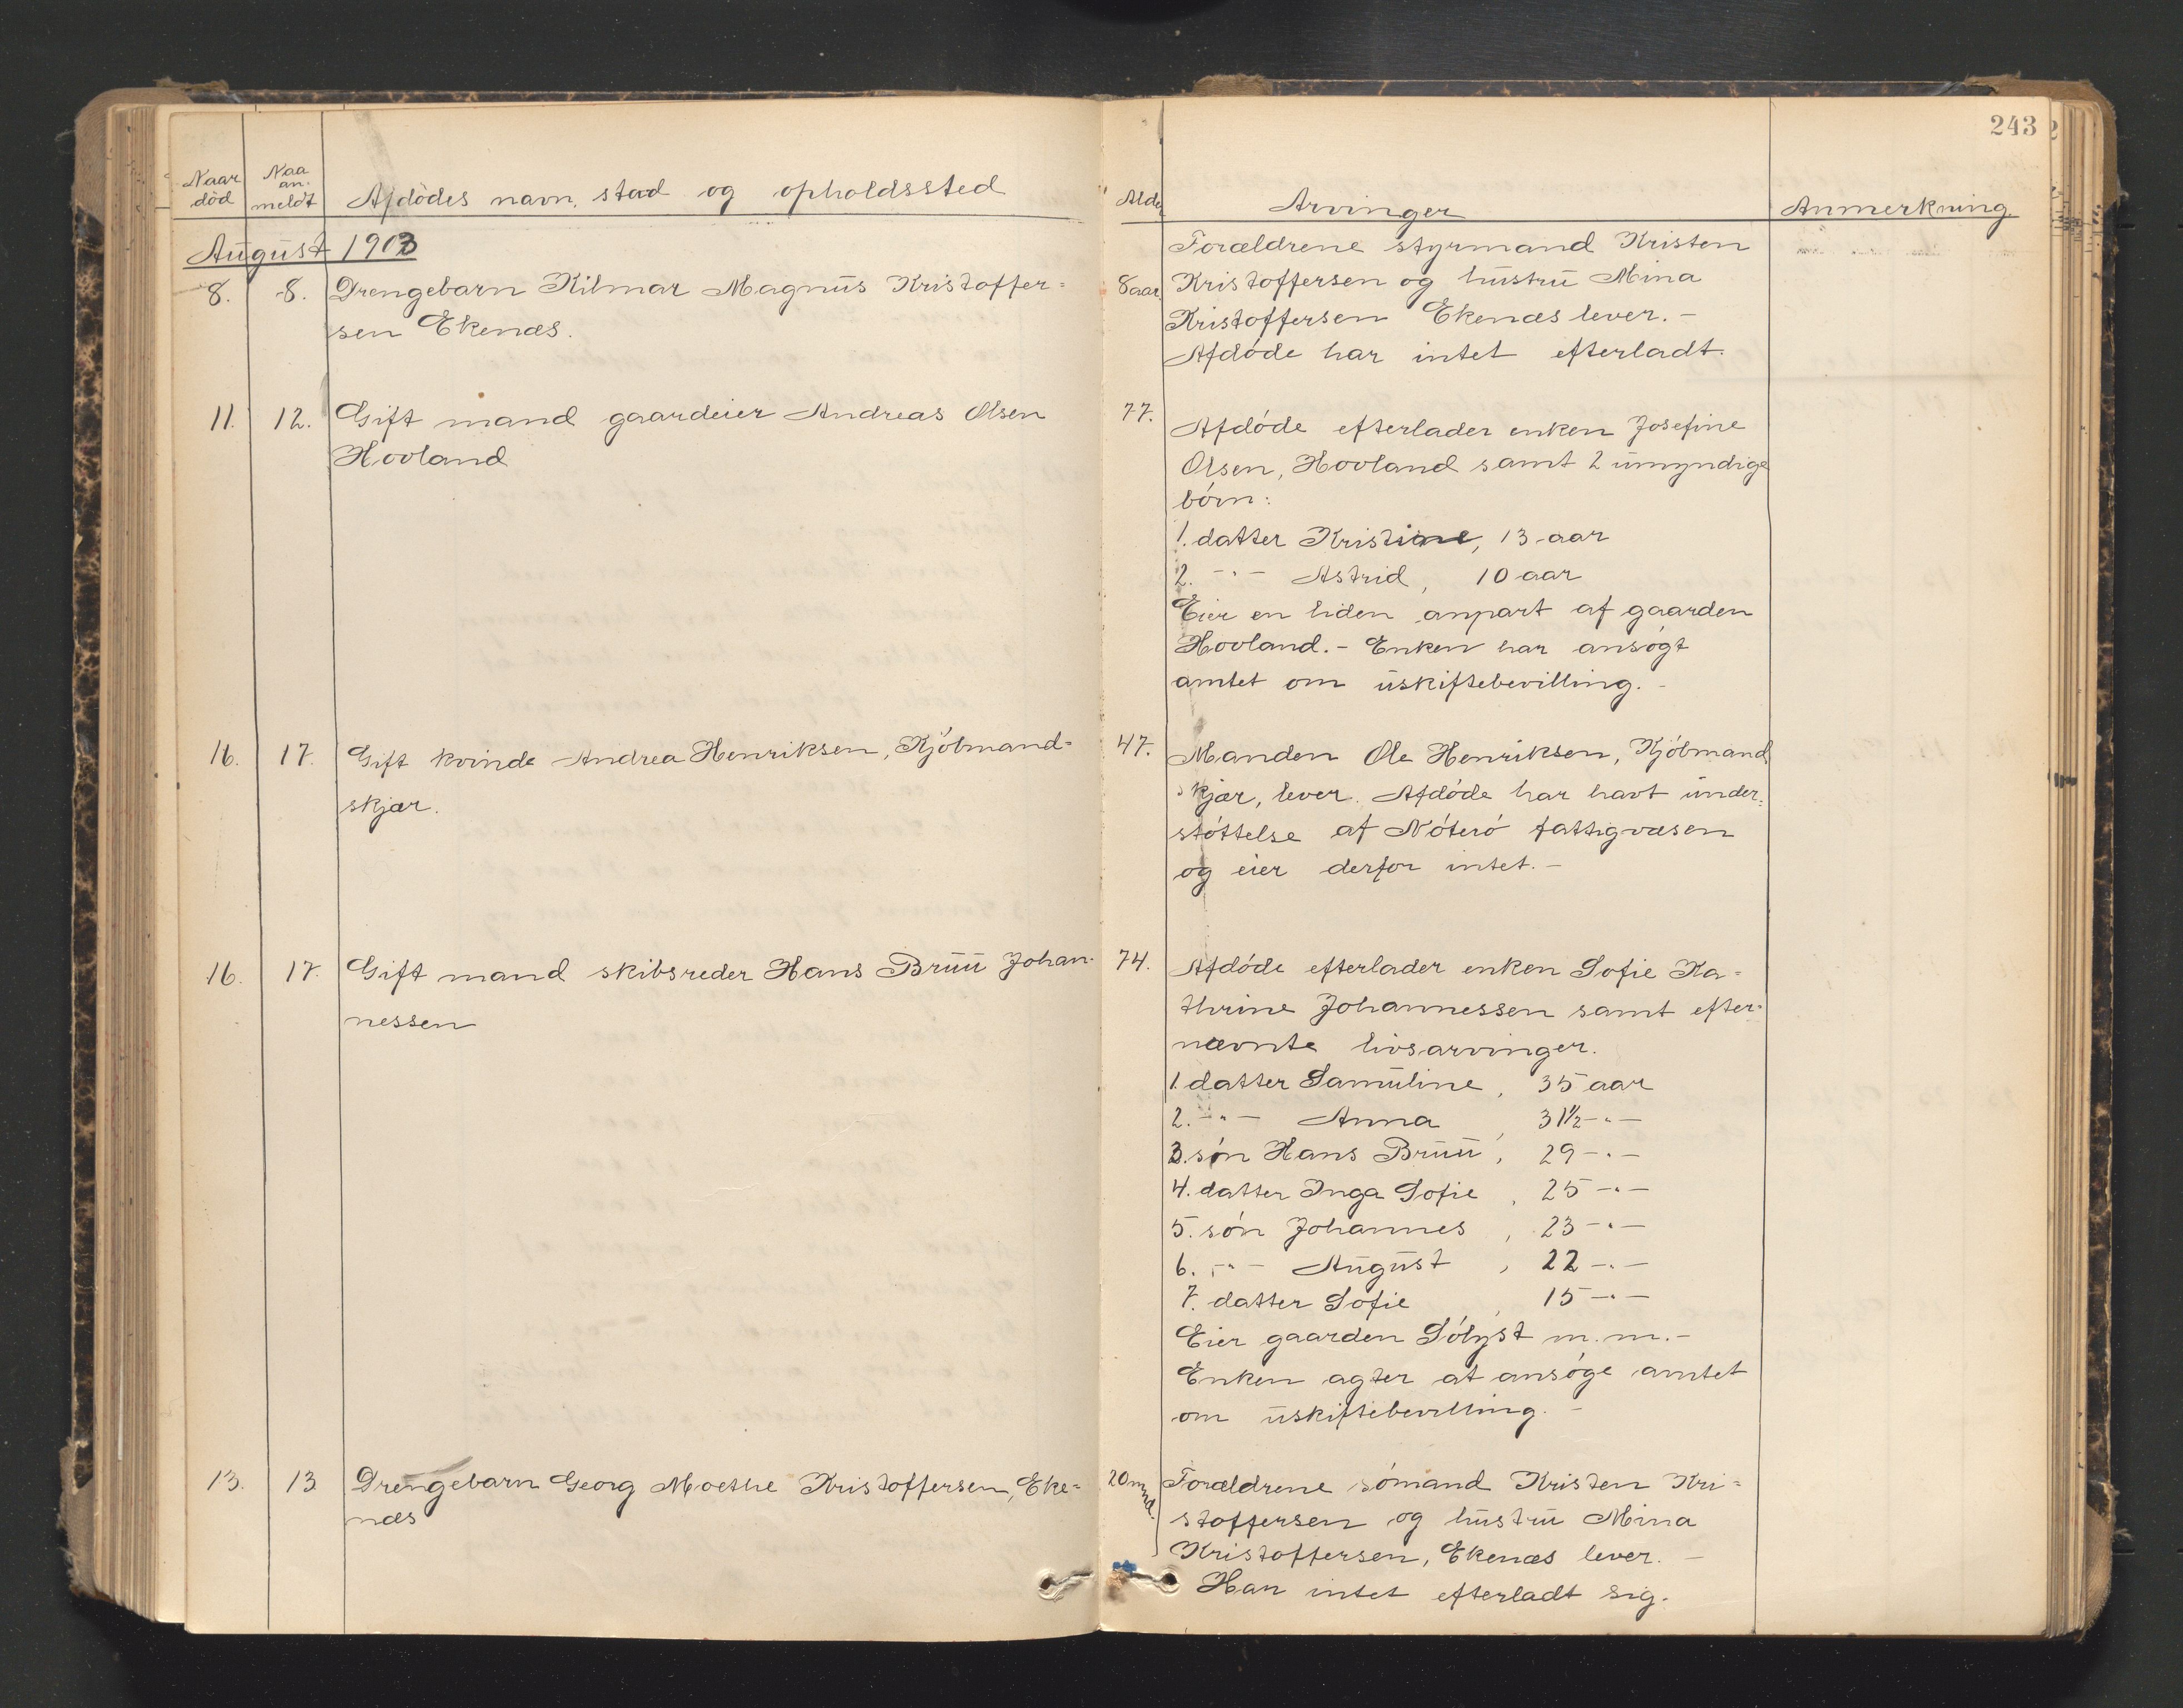 243
Naar død
Naa an. meldt
Afdödes navn, stad og opholdssted
Alder
Arvinger
Anmerkning.
August 1903
8. 8. Drengebarn Hilmar Magnus Kristoffer=
sen Ekenæs.
8 aar.
Forældrene styrmand Kristen
Kristoffersen og hustru Mina
Kristoffersen Ekenæs lever. -
Afdöde har intet efterladt.
11. 12. Gift mand gaardeier Andreas Olsen
Hovland
77.
Afdöde efterlader enken Josefine
Olsen, Hovland samt 2 umyndige
börn:
1. datter Kristine, 13 aar
2. -"- Astrid, 10 aar
Eier en liden anpart af gaarden
Hovland. - Enken har ansögt
amtet om uskiftebevilling. -
16. 17. Gift kvinde Andrea Henriksen, Kjöbmand=
skjær.
47.
Manden Ole Henriksen, Kjöbmand
skjær, lever. Afdöde har havt under=
stöttelse af Nöterö fattigvæsen
og eier derfor intet. -
16. 17. Gift mand skibsreder Hans Bruu Johan-
nessen
74.
Afdöde efterlader enken Sofie Ka=
thrine Johannessen samt efter=
nævnte livsarvinger.
1. datter Samuline, 35 aar
2. -"- Anna, 31½ -"-
3. sön Hans Bruu, 29 -"-
4. datter Inga Sofie, 25 -"-
5. sön Johannes, 23 -"-
6. -"- August, 22 -"-
7. datter Sofie, 15 -"-
Eier gaarden Sölyst m.m. -
Enken agter at ansöge amtet
om uskiftebevilling. -
13. 13 Drengebarn Georg Moethe Kristoffersen, Eke=
næs
20 mnd.
Forældrene sömand Kristen Kri=
stoffersen og hustru Mina
Kristoffersen, Ekenæs lever. -
Han intet efterladt sig.